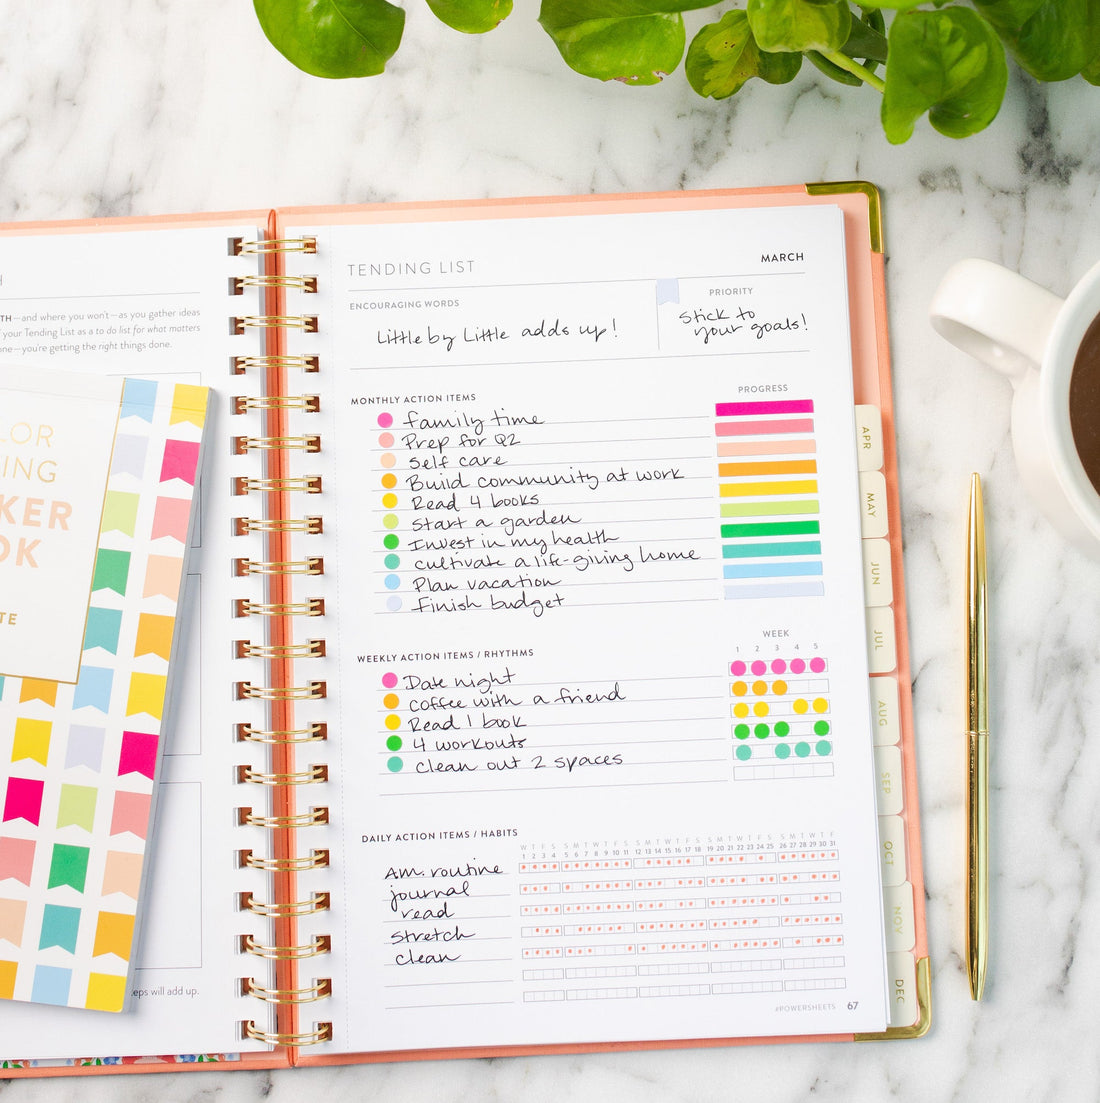 H
TH—and where you won't—as you gather ideas
your Tending List as a to do list for what matters
one—you're getting the right things done.
LOR
ING
KER
OK
TE
eps will add up.
TENDING LIST
MARCH
ENCOURAGING WORDS
Little by Little adds up!
PRIORITY
Stick to
your goals!
MONTHLY ACTION ITEMS
PROGRESS
family time
Prep for Q2
Self care
Build community at work
Read 4 books
Start a garden
Invest in my health
cultivate a life-giving home
Plan vacation
Finish budget
WEEKLY ACTION ITEMS / RHYTHMS
WEEK
1 2 3 4 5
Date night
coffee with a friend
Read 1 book
4 workouts
clean out 2 spaces
DAILY ACTION ITEMS / HABITS
W T F S S M T W T F S S M T W T F S S M T W T F S S M T W T F
1 2 3 4 5 6 7 8 9 10 11 12 13 14 15 16 17 18 19 20 21 22 23 24 25 26 27 28 29 30 31
Am. routine
journal
read
stretch
clean
#POWERSHEETS 67
APR
MAY
JUN
JUL
AUG
SEP
OCT
NOV
DEC